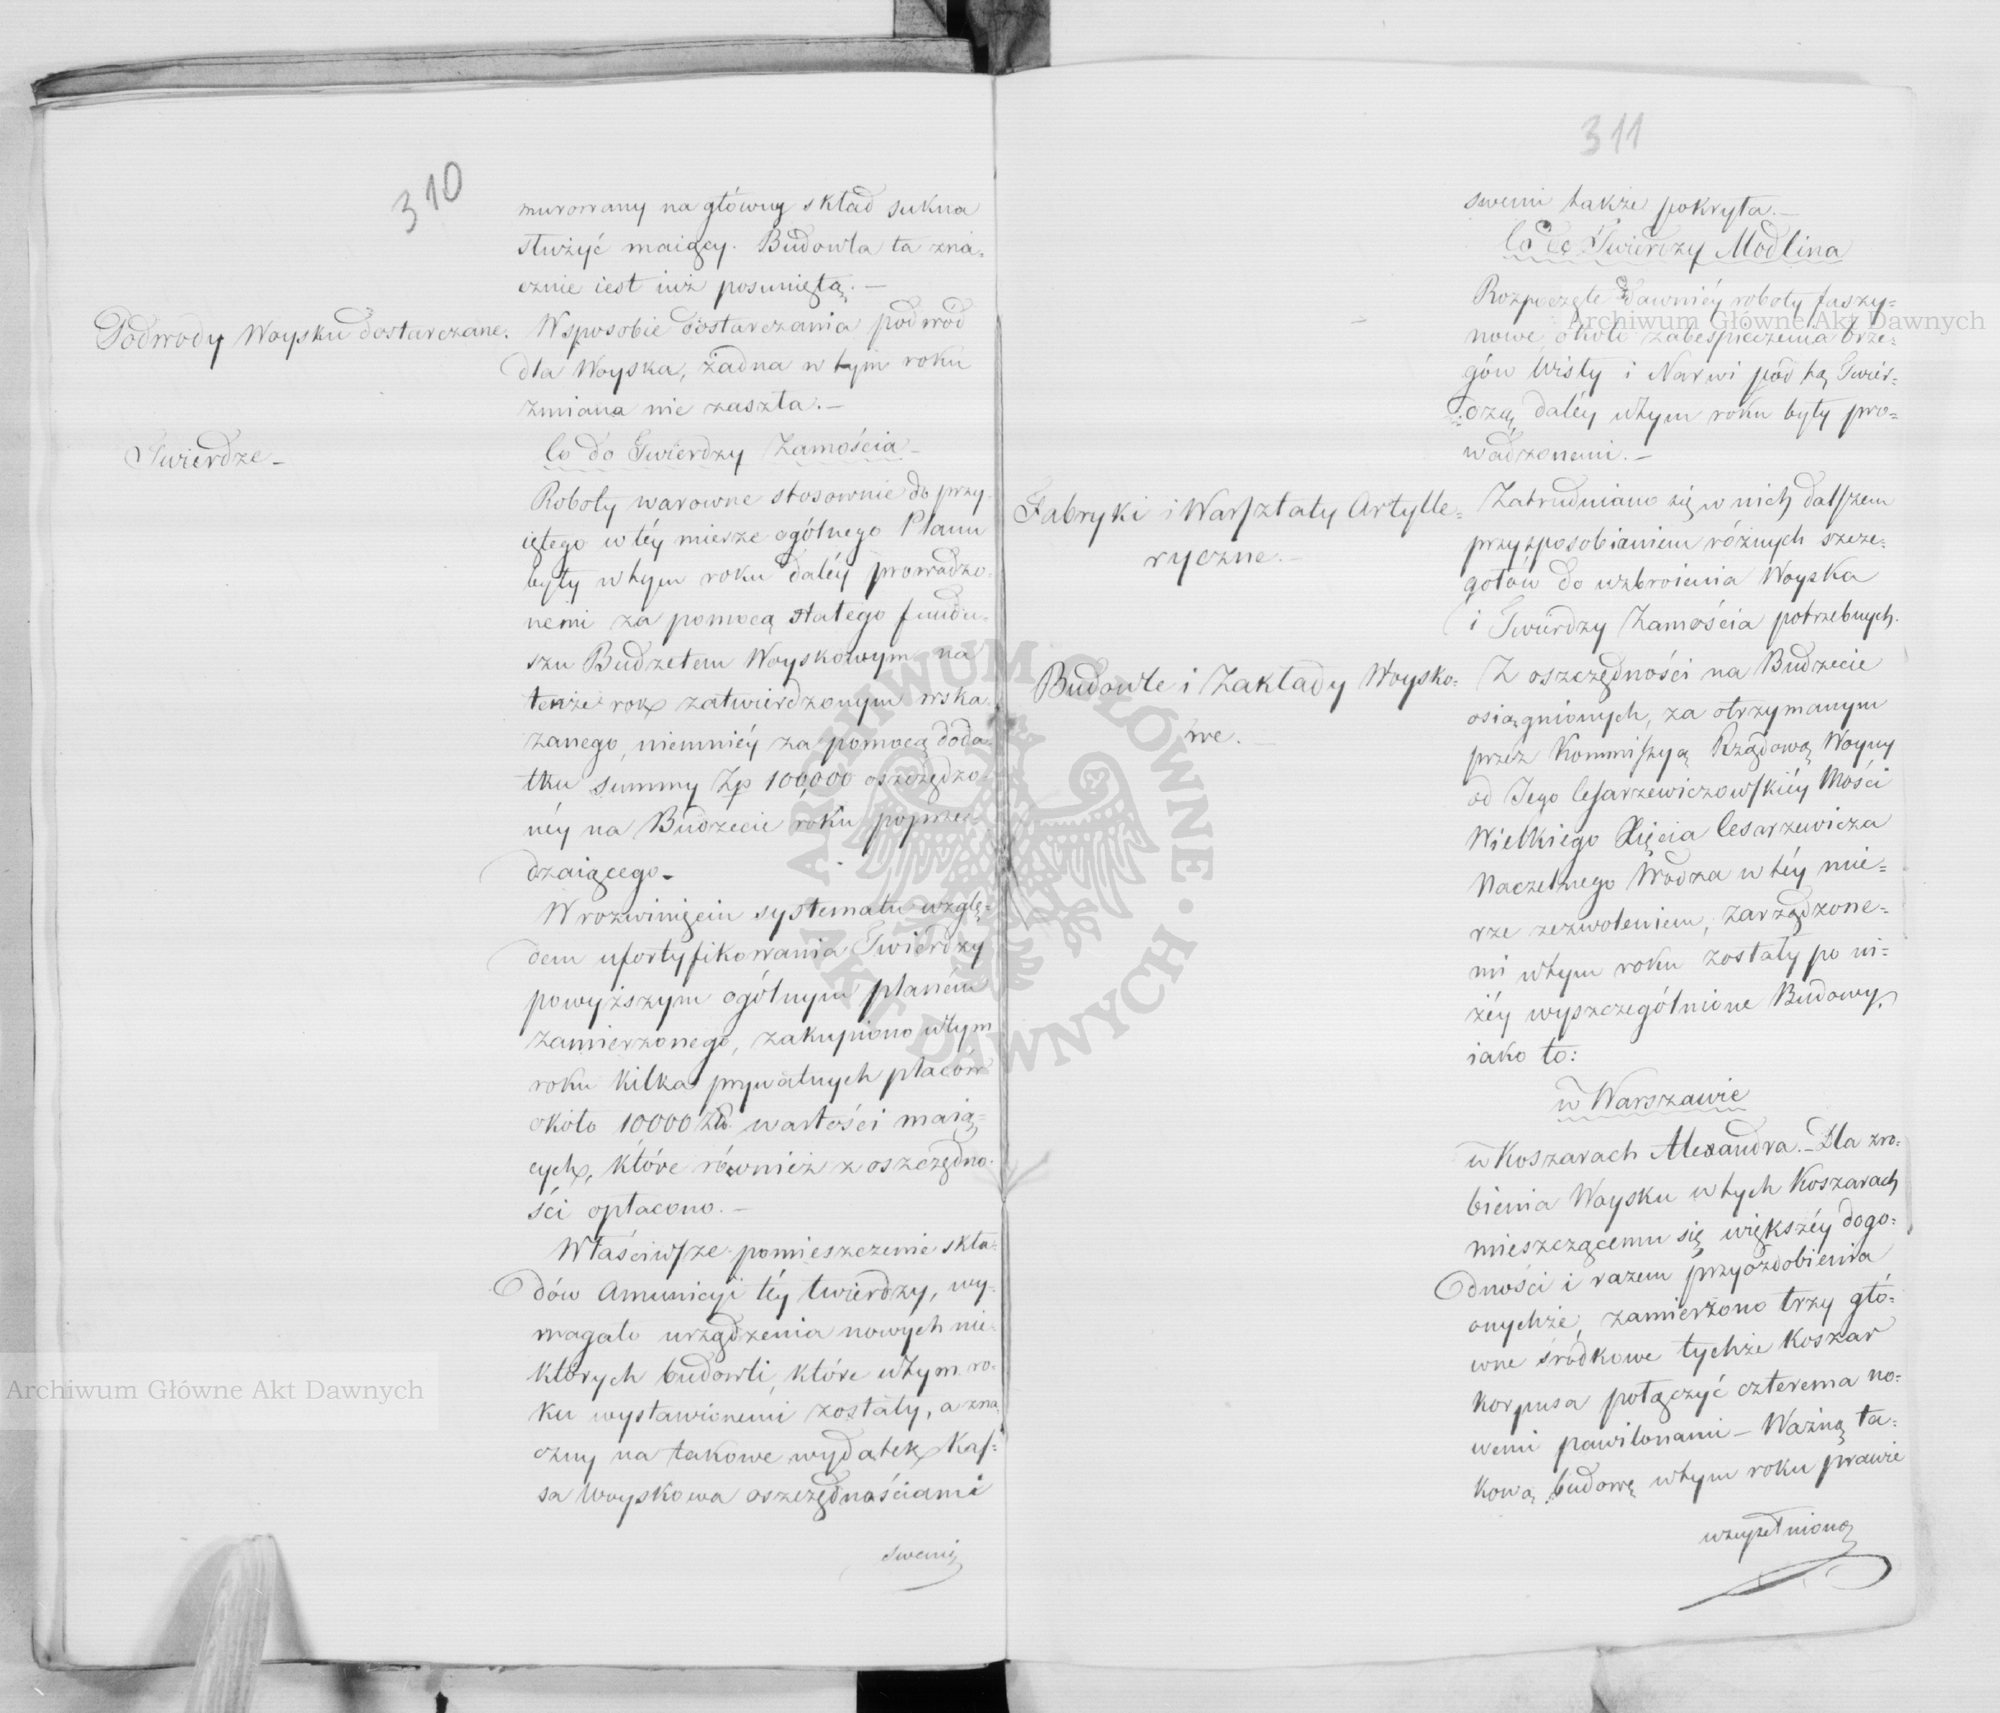 310
murowany na główny skład sukna
służyć maiący. Budowla ta zna=
cznie iest iuż posuniętą. —
Podwody Woysku dostarczane.
W sposobie dostarczania podwod
dla Woyska, żadna w tym roku
zmiana nie zaszła. —
Twierdze —
Co do Twierdzy Zamościa —
Roboty warowne stosownie do przy-
iętego w téy mierze ogólnego Planu
były w tym roku daléy prowadzo-
nemi za pomocą stałego fundu-
szu Budżetem Woyskowym na
tenże rok zatwierdzonym wska-
zanego, niemniéy za pomocą doda-
tku summy Zp 100,000 oszczędzo-
néy na Budżecie roku poprze-
dzaiącego. —
W rozwinięciu systematu wzglę-
dem ufortyfikowania Twierdzy
powyższym ogólnym planem
zamierzonego, zakupiono w tym
roku kilka prywatnych placów
około 10000 Zł. wartości maią=
cych, które również z oszczędno-
ści opłacono. —
Właściwsze pomieszczenie skła-
dów Amunicyi téy twierdzy, wy-
magało urządzenia nowych nie-
których budowli, które w tym ro-
ku wystawionemi zostały, a zna-
czny na takowe wydatek Kas=
sa Woyskowa oszczędnościami
swemi
311
swemi także pokryła. —
Co do Twierdzy Modlina
Rozpoczęte dawniéy roboty faszy=
nowe około zabespieczenia brze=
gów Wisły i Narwi pod tą Twier=
dzą, daléy w tym roku były pro=
wadzonemi. —
Fabryki i Warsztaty Artylle=
ryczne. —
Zatrudniano się w nich dalszem
przysposobianiem różnych szcze=
gołów do uzbroienia Woyska
i Twierdzy Zamościa potrzebnych.
Budowle i Zakłady Woysko=
we. —
Z oszczędności na Budżecie
osiągnionych, za otrzymanym
przez Kommissyą Rządową Woyny
od Jego Cesarzewiczowskiéy Mości
Wielkiego Xięcia Cesarzewicza
Naczelnego Wodza w téy mie=
rze zezwoleniem, zarządzone=
mi w tym roku zostały po ni=
żéy wyszczególnione Budowy,
iako to:
w Warszawie
w Koszarach Alexandra. — Dla zro=
bienia Woysku w tych Koszarach
mieszczącemu się większéy dogo=
dności i razem przyozdobienia
onychże, zamierzono trzy głó=
wne środkowe tychże Koszar
Korpusa połączyć czterema no=
wemi pawilonami — Ważną ta=
kową budowę w tym roku prawie
uzupełnioną
Archiwum Główne Akt Dawnych
Archiwum Główne Akt Dawnych
ARCHIWUM GŁÓWNE AKT DAWNYCH